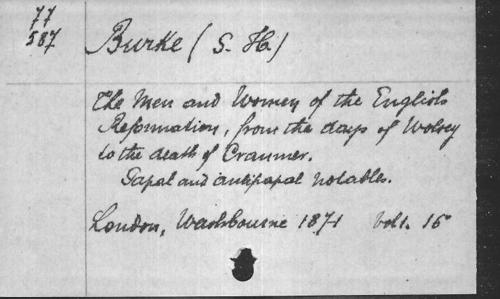 77
587
Burke (S. H.)
The Men and Women of the English
Reformation, from the days of Wolsey
to the death of Cranmer.
Papal and antipapal notables.
London, Washbourne 1871 vol 1. 16°